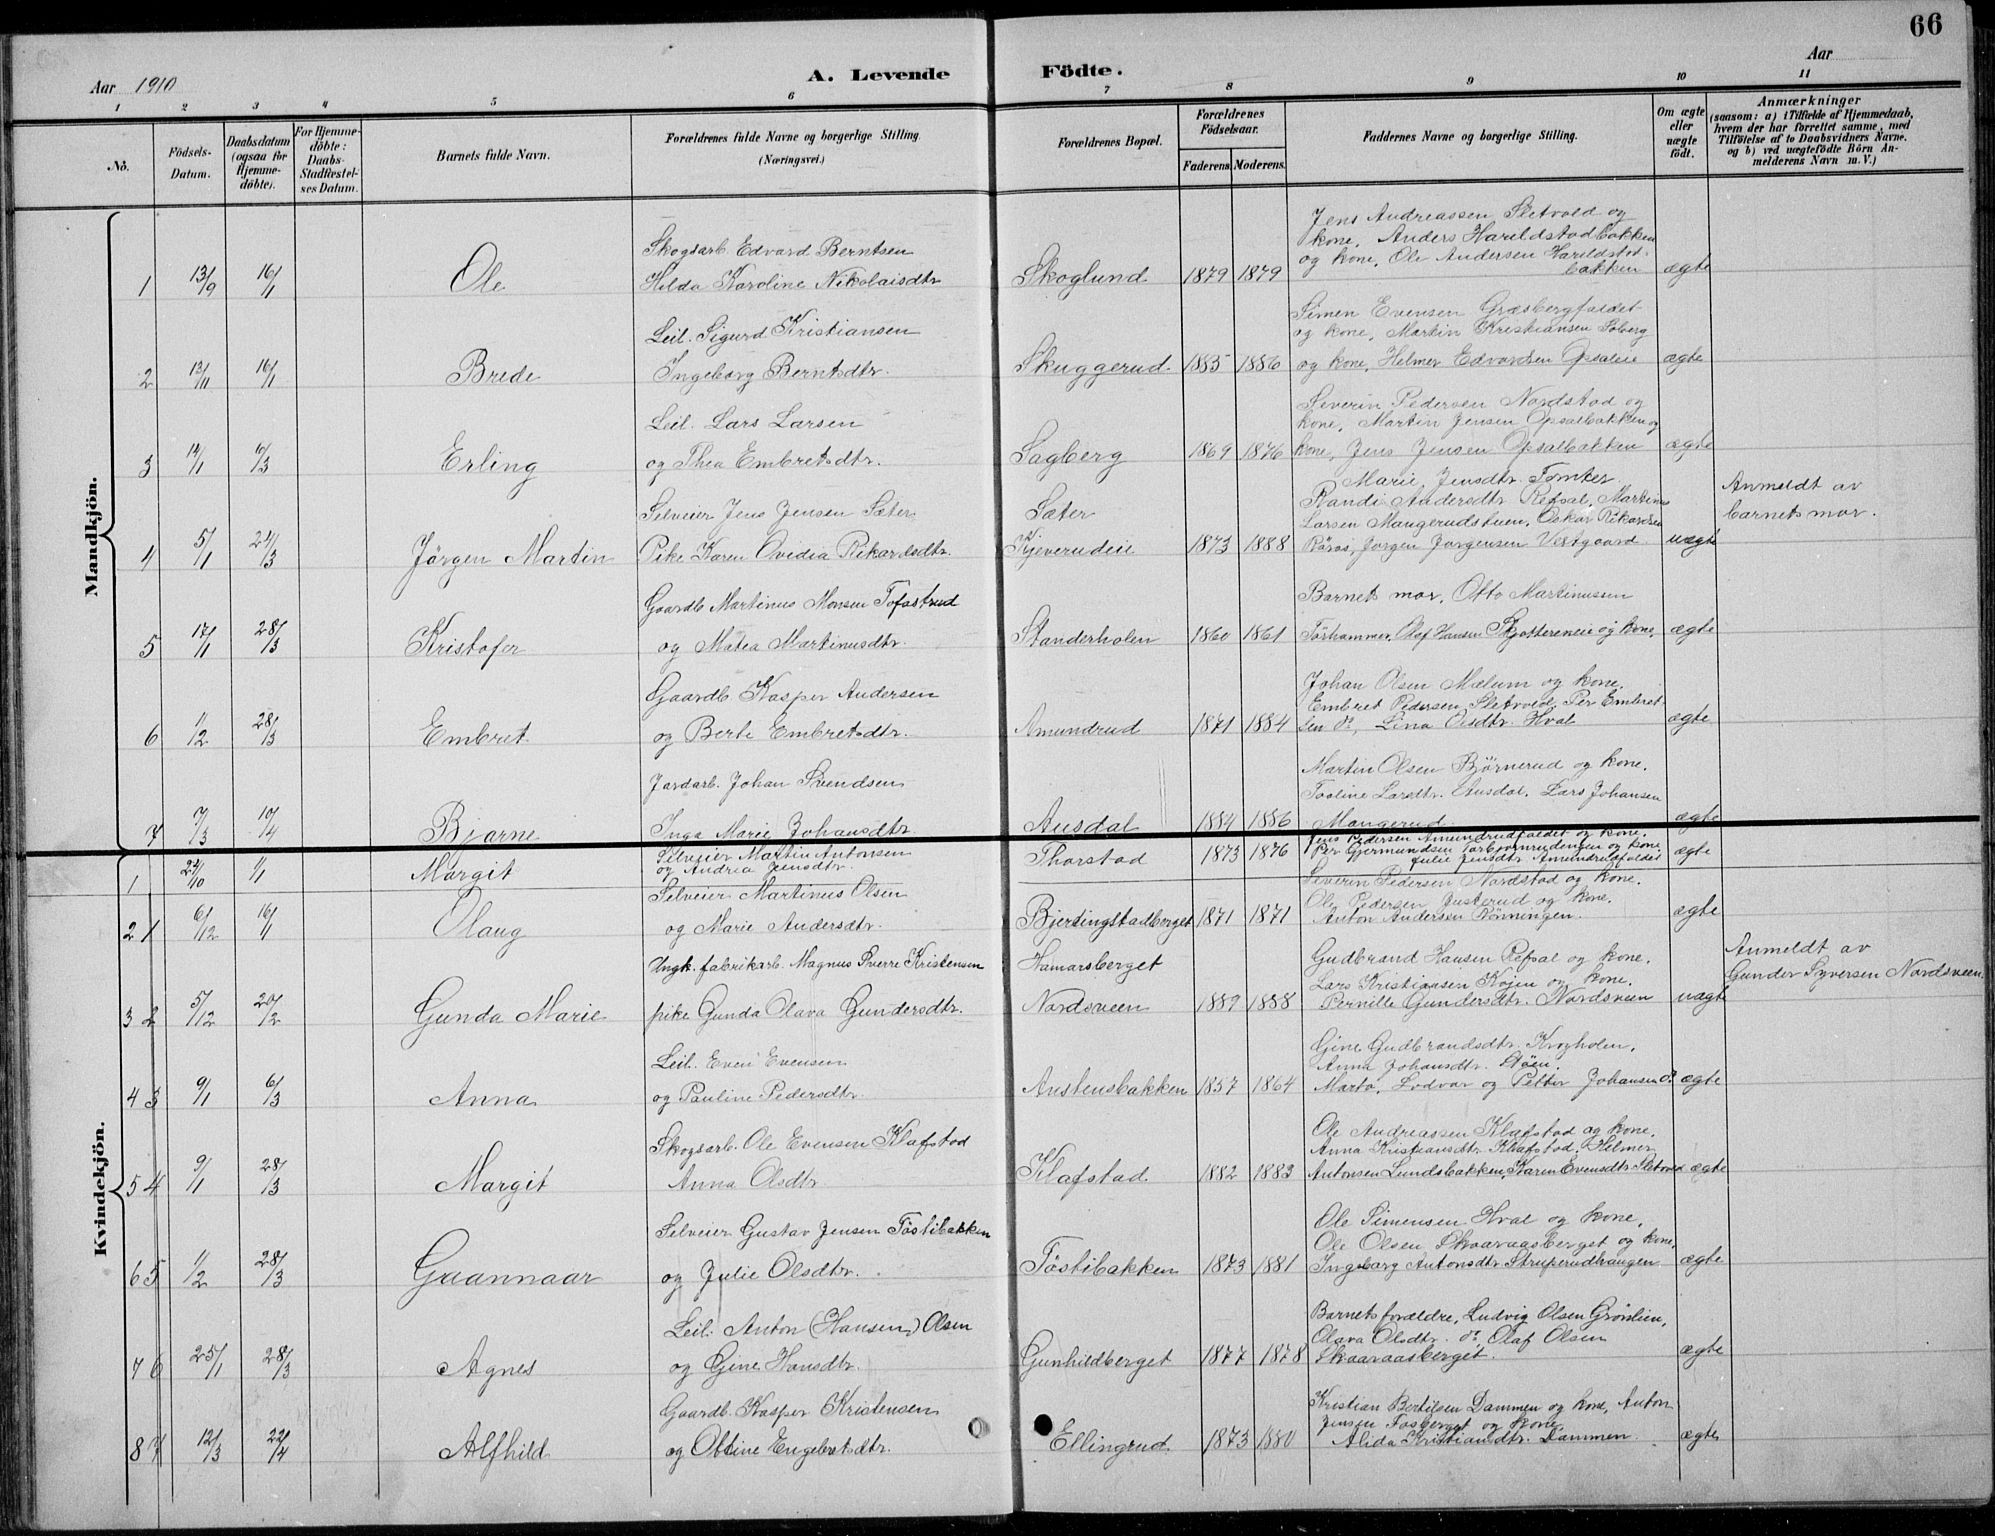 66
Aar 1910
A. Levende Födte.
Aar
1 2 3 4 5 6 7 8 9 10 11
No.
Födsels-Datum.
Daabsdatum (ogsaa for Hjemme-døbte).
For Hjemme-döbte: Daabs-Stadfæstel-ses Datum.
Barnets fulde Navn.
Forældrenes fulde Navne og borgerlige Stilling. (Næringsvei.)
Forældrenes Bopæl.
Forældrenes Födselsaar.
Faderens. Moderens.
Faddernes Navne og borgerlige Stilling.
Om ægte eller uægte födt.
Anmærkninger
(saasom: a) i Tilfælde af Hjemmedaab, hvem der har forrettet samme, med Tilföielse af to Daabsvidners Navne. og b) ved uægtefödte Börn An-melderens Navn m. V.)
Mandkjön.
Jens Andreassen Sletvold og
kone, Anders Hareldstadbakken
Skogsarb. Edvard Berntsen
og kone, Ole Andersen Hareldstad-
bakken
1 13/9 16/1 Ole Hilda Karoline Nikolaisdtr. Skoglund 1879 1879 ægte
Simen Evensen Græsbergfaldet
Leil. Sigurd Kristiansen
og kone, Martin Kristiansen Soberg
2 13/11 16/1 Brede Ingeborg Berntsdtr. Skuggerud 1885 1886 og kone, Helmer Edvardsen Opsaleie ægte
Severin Pedersen Nordstad og
Leil. Lars Larsen
kone, Martin Jensen Opsalbakken og
3 13/1 6/3 Erling og Thea Embretsdtr. Sagberg 1869 1876 kone, Jens Jensen Opsalbakken ægte
Marie Jensdtr. Tomter.
Selveier Jens Jensen Sæter Sæter Randi Andersdtr. Refsal, Martinus Anmeldt av
Larsen Mangerudstuen, Oskar Rikardsen barnets mor.
4 5/1 21/3 Jörgen Martin Pike Karen Ovidia Rikardsdtr. Kjeverudeie 1873 1888 Röros, Jorgen Jorgensen Vestgaard uægte
Gaardb. Martinus Monsen Tofastrud
Barnets mor, Otto Martinussen
5 17/1 28/3 Kristofer og Matea Martinusdtr. Standerholen 1860 1861 Torhammer, Olaf Hansen Skjottereneie og kone, ægte
Gaardb. Kasper Andersen
Johan Olsen Mælum og kone,
Embret Pedersen Sletvold, Per Embret-
6 1/2 28/3 Embret og Berte Embretsdtr. Amundrud 1871 1884 sen do, Lina Olsdtr. Hval ægte
Jordarb. Johan Svendsen
Martin Olsen Björnerud og kone.
Taaline Larsdtr. Ausdal, Lars Johansen
7 7/3 10/4 Bjarne Inga Marie Johansdtr. Ausdal 1884 1886 Mangerud. ægte
Kvindekjön.
Jens Pedersen Amundrudfaldet og kone.
Selveier Martin Antonsen
1 23/10 1/1 Margit og Andrea Jensdtr. Thorstad 1873 1876 Per Gjermundsen Torbjornrudengen og kone, ægte
Julie Jensdtr. Amundrudfaldet
Selveier Martinus Olsen
Severin Pedersen Nordstad og kone.
Ole Pedersen Justerud og kone.
2 1 6/12 16/1 Olaug og Marie Andersdtr. Bjerdingstadberget 1871 1871 Anton Andersen Rönningen. ægte
Ungk. fabrikarb. Magnus Sverre Kristensen Hamarsberget Gudbrand Hansen Refsal og kone. Anmeldt av
Lars Kristiansen Kojen og kone. Gunder Syversen Nordsveen.
3 2 5/12 20/2 Gunda Marie pike Gunda Olava Gundersdtr. Nordsveen 1889 1888 Pernille Gundersdtr. Nordsveen uægte
Gine Gudbrandsdtr. Krogholen.
Leil. Even Evensen
Anna Johansdtr. Stöen.
4 3 9/1 6/3 Anna og Pauline Pedersdtr. Austensbakken 1857 1864 Marta, Lodvar og Petter Johansen do ægte
Ole Andreassen Klafstad og kone.
Skogsarb. Ole Evensen Klafstad
Anna Kristiansdtr. Klafstad, Helmer
5 4 9/1 28/3 Margit Anna Olsdtr. Klafstad 1882 1883 Antonsen Lundsbakken, Karen Evensdtr. Sletvold ægte
Ole Simensen Hval og kone.
Selveier Gustav Jensen Töstibakken
Ole Olsen Skvaraasberget og kone,
6 5 1/2 28/3 Gaannaar og Julie Olsdtr. Töstibakken 1873 1881 Ingeborg Antonsdtr. Struperudhaugen ægte
Barnets forældre, Ludvig Olsen Grönlien,
Leil. Anton (Hansen) Olsen
Olava Olsdtr. do, Olaf Olsen
7 6 25/1 28/3 Agnes og Gine Hansdtr. Gunhildberget 1877 1878 Skvaraasberget. ægte
Kristian Bertilsen Dammen og kone, Anton
Gaardb. Kasper Kristensen
Jensen Fosberget og kone
8 7 12/3 22/4 Alfhild og Ottine Engebretsdtr. Ellingrud 1873 1880 Alida Kristiansdtr. Dammen. ægte